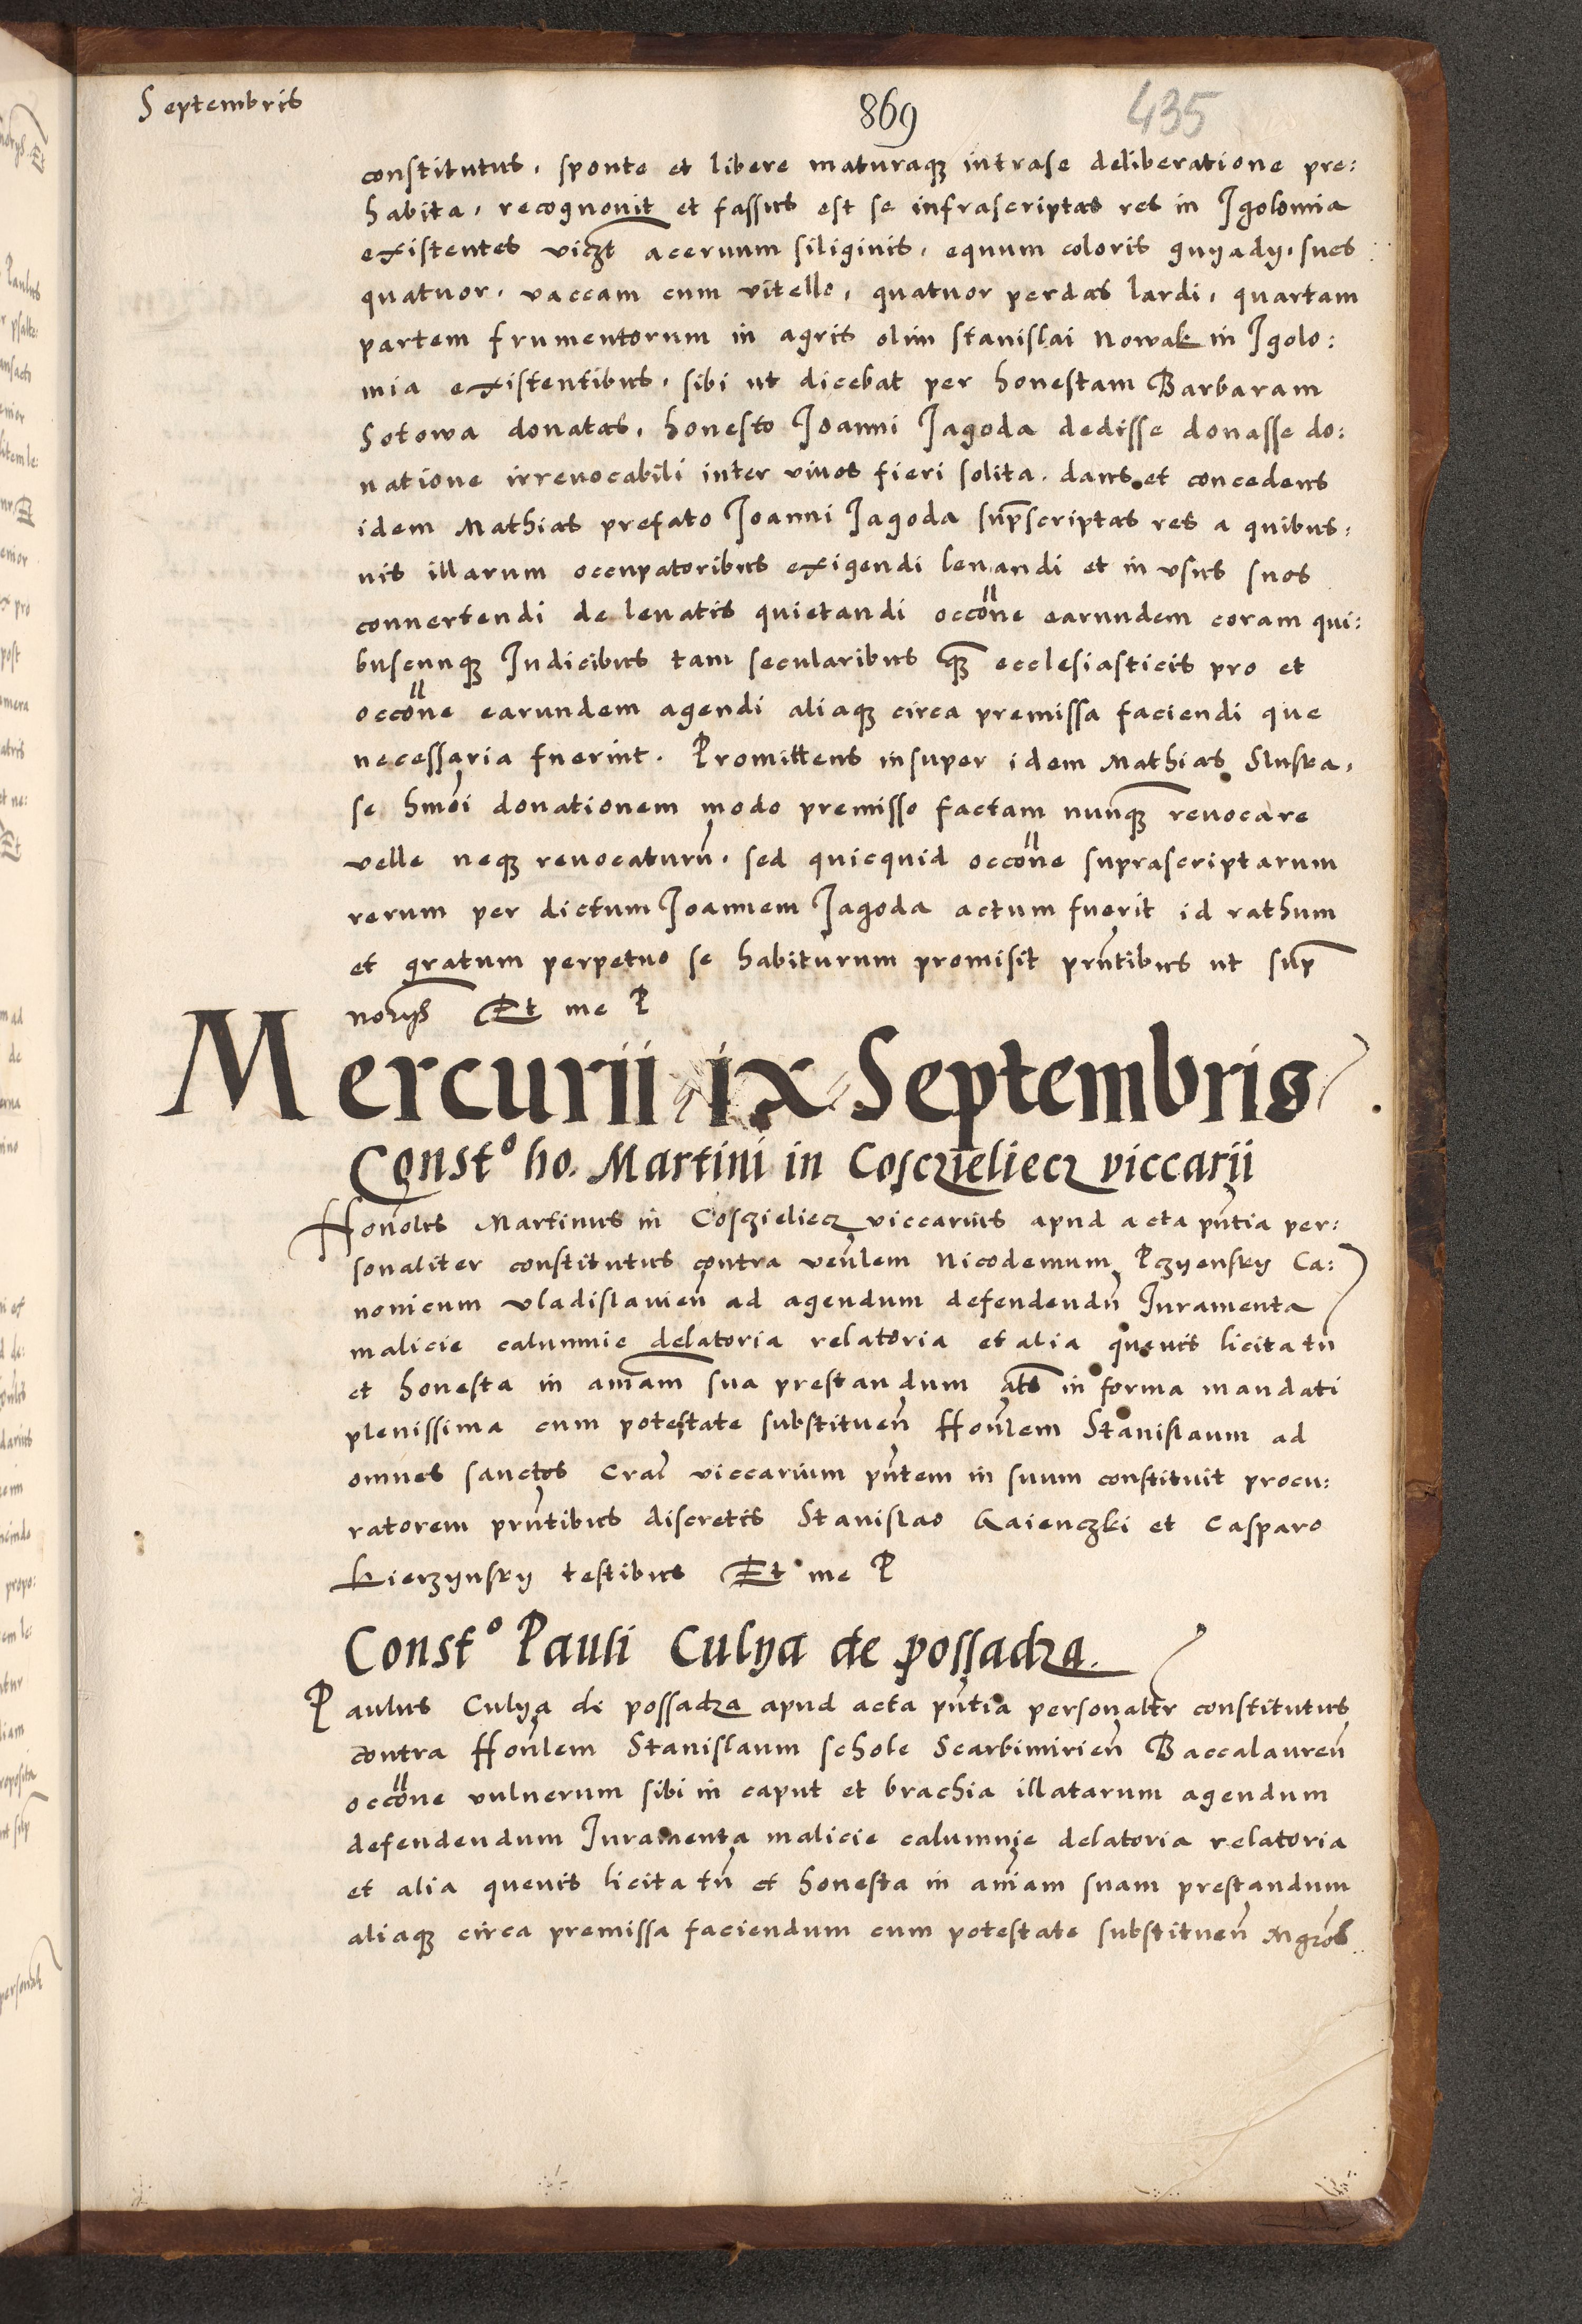 Septembris
869
435
constitutus, sponte et libere maturaq₃ intra se deliberatione pre:
habita, recognouit et fassus est se infrascriptas res in Igolomia
existentes viczt aceruum siliginis, equum coloris gnyady, sues
quatuor, vaccam cum vitello, quatuor perdas lardi, quartam
partem frumentorum in agris olim Stanislai Nowak in Igolo:
mia existentibus, sibi ut dicebat per honestam Barbaram
Sotowa donatas, honesto Joanni Jagoda dedisse donasse do:
natione irreuocabili inter viuos fieri solita. dans et concedens
idem Mathias prefato Joanni Jagoda sup̄scriptas res a quibus,
uis illarum occupatoribus exigendi leuandi et in vsus suos
conuertendi de leuatis quietandi occōne earundem coram qui:
buscunq₃ Iudicibus tam secularibus q̄₃ ecclesiasticis pro et
occōne earundem agendi aliaq₃ circa premissa faciendi que
necessaria fuerint. Promittens insuper idem Mathias Sluska,
se hmōi donationem modo premisso factam nunq̄₃ reuocare
velle neq₃ reuocaturū, sed quicquid occōne suprascriptarum
rerum per dictum Joannem Jagoda actum fuerit id rathum
et gratum perpetuo se habiturum promisit pn̄tibus ut sup̄
Et me P
Mercurii ix Septembris
Constᵒ ho. Martini in Cosczieliecz viccarii
Honolis Martinus in Cosczieliecz viccarius apud acta pn̄tia per:
sonaliter constitutus contra ven̄lem Nicodemum Pczyensky Ca:
nonicum Vladislauien̄ ad agendum defendendū Iuramenta
malicie calumnie delatoria relatoria et alia queuis licita tn̄
et honesta in am̄am sua prestandum als̄ in forma mandati
plenissima cum potestate substituen̄ Hon̄lem Stanislaum ad
omnes sanctos Crac̄ viccarium pn̄tem in suum constituit procu:
ratorem pn̄tibus discretis Stanislao Gaienczki et Casparo
Kierzynsky testibus Et me P
Constᵒ Pauli Culya de possadza.
Paulus Culya de possadza apud acta pn̄tia personaltr constitutus
contra Hon̄lem Stanislaum schole Scarbimirien̄ Baccalauren̄
occōne vulnerum sibi in caput et brachia illatarum agendum
defendendum Iuramenta malicie calumnie delatoria relatoria
et alia queuis licita tn̄ et honesta in anīam suam prestandum
aliaq₃ circa premissa faciendum cum potestate substituen̄ Mgr̄os